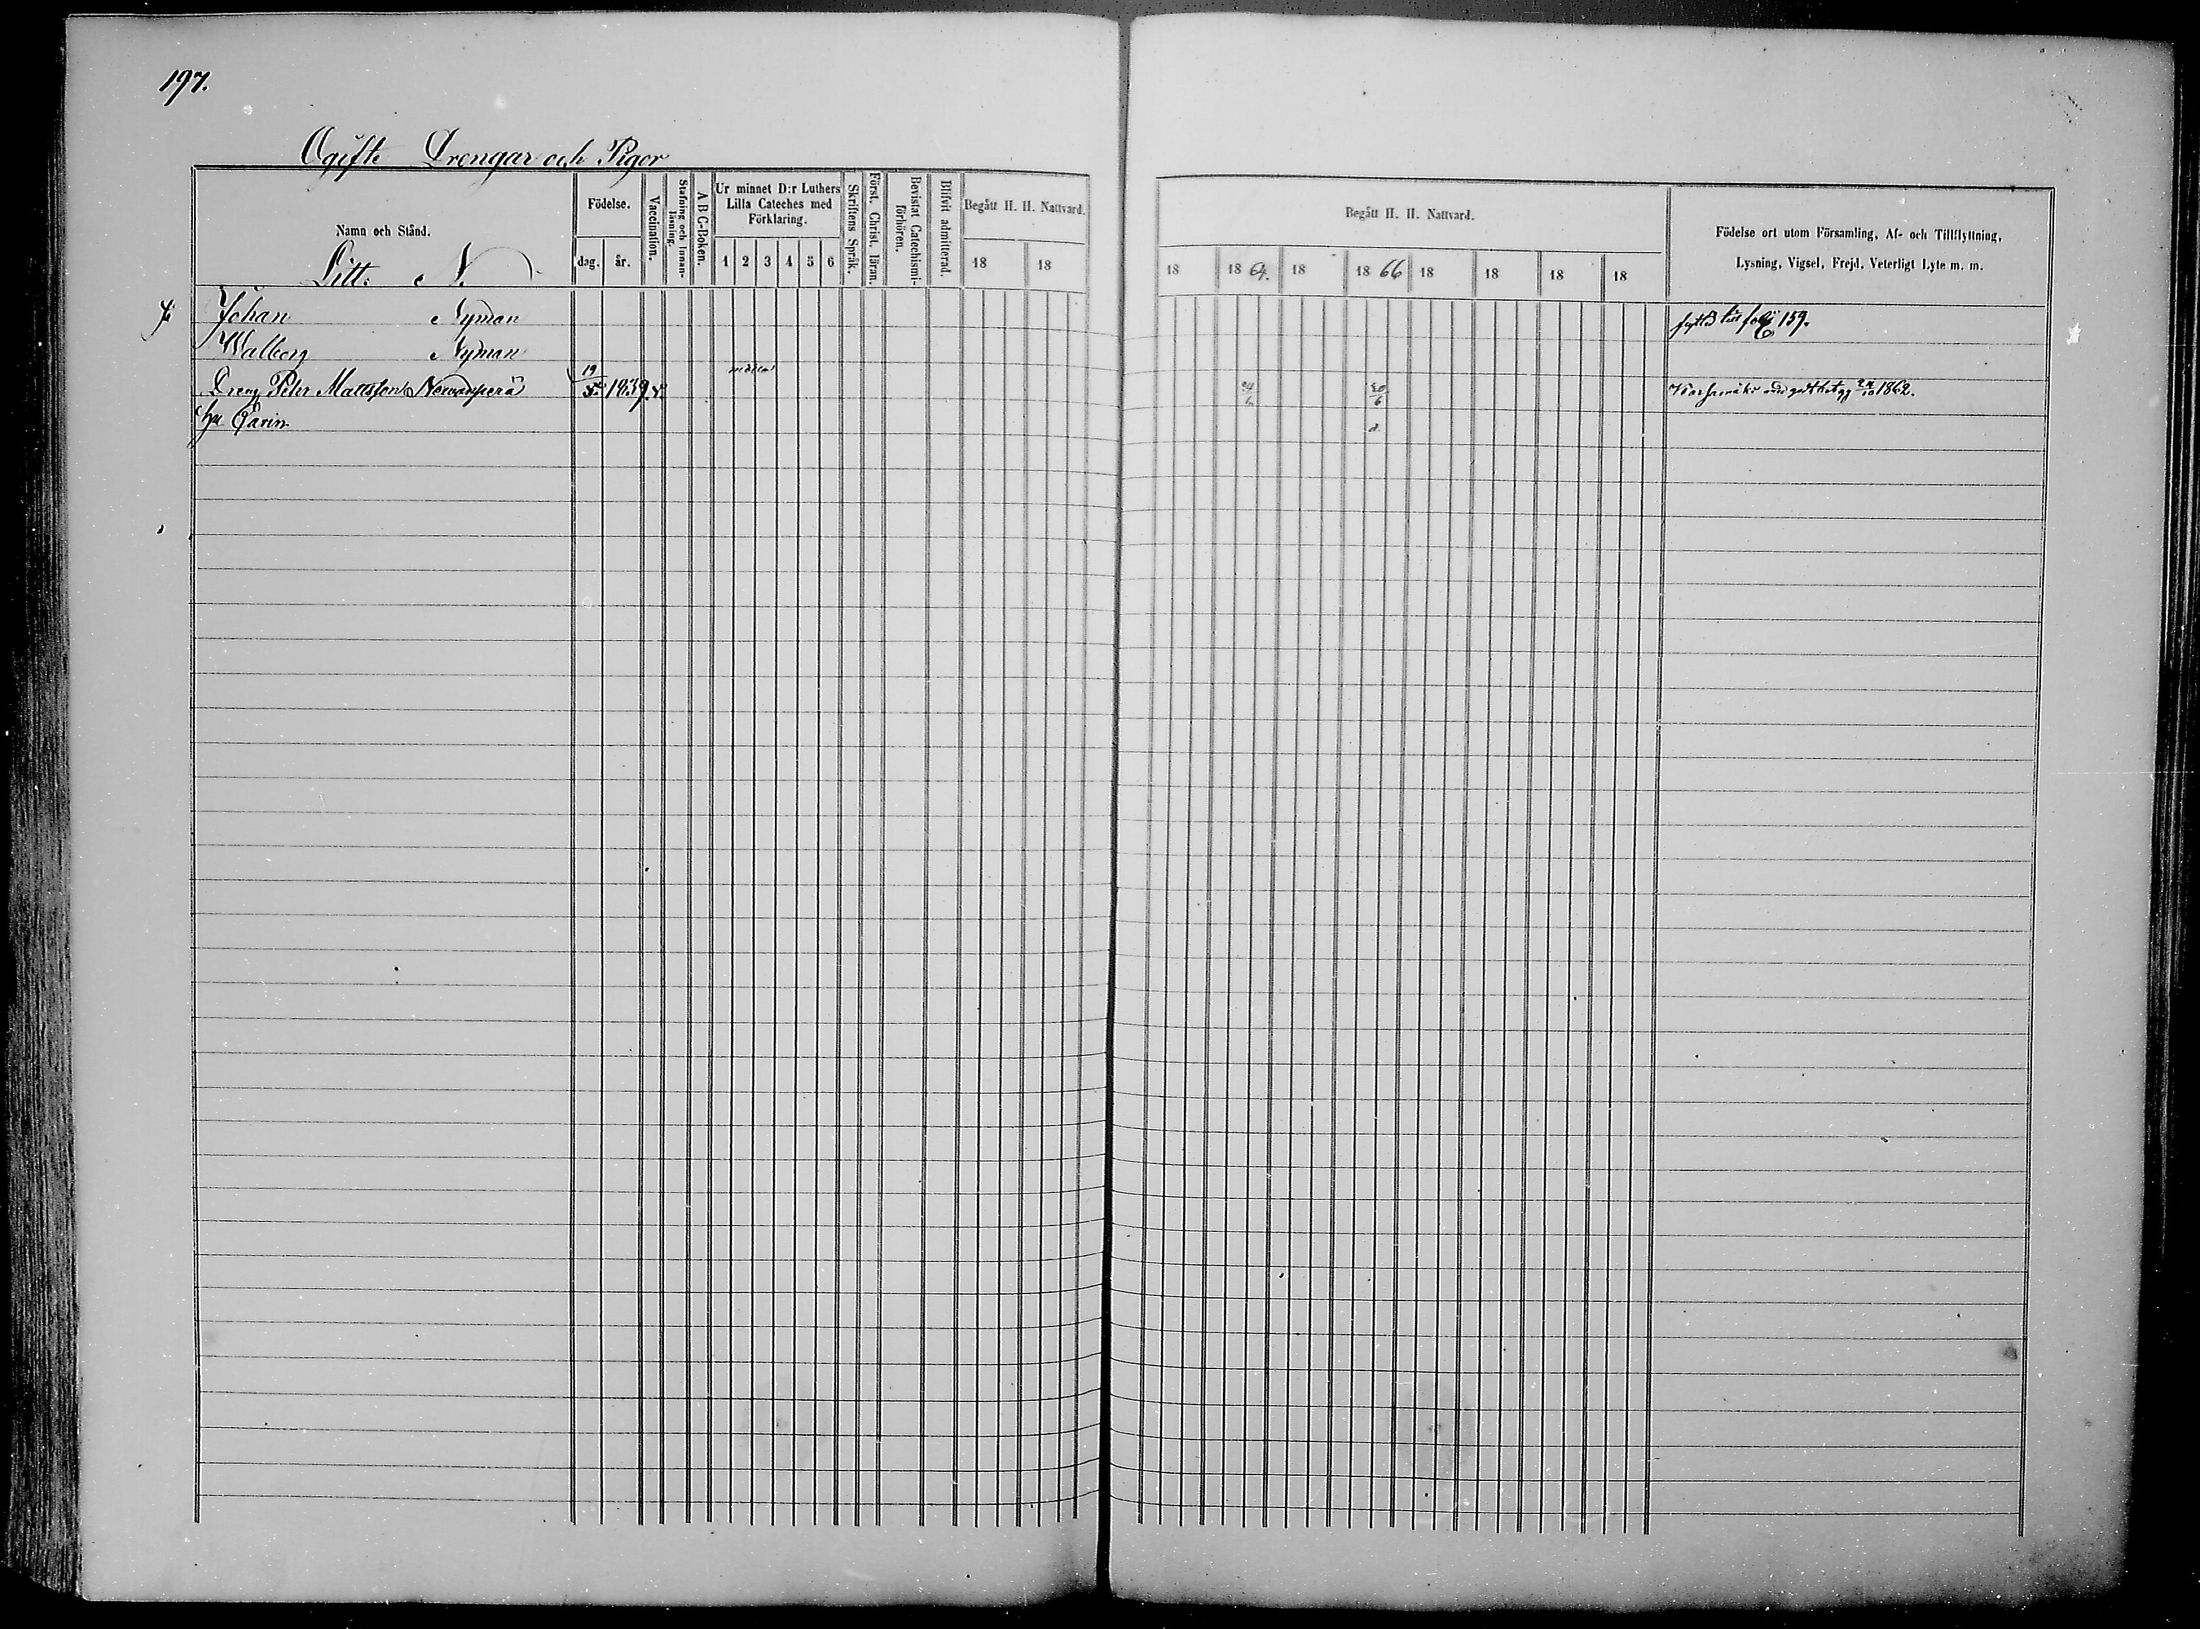 197.
Ogifte Drengar och Pigor
Namn och Stånd.
Litt: N.
Födelse.
dag. år.
Vaccination.
Stafning och Innanläsning.
A B C-Boken.
Ur minnet D:r Luthers Lilla Cateches med Förklaring.
1 2 3 4 5 6
Skriftens Språk.
Först. Christ. läran.
Bevistat Catechismi-förhören.
Blifvit admitterad.
Begått H. H. Nattvard.
18 18
Begått H. H. Nattvard.
18 18 64. 18 18 66 18 18 18 18
Födelse ort utom Församling, Af- och Tillflyttning, Lysning, Vigsel, Frejd, Veterligt Lyte m. m.
Johan Nyman flyttad till folio 159.
Walborg Nyman
Dreng Pehr Mattsson 19/5 1839 24/6 30/6 1862.
Carin d.